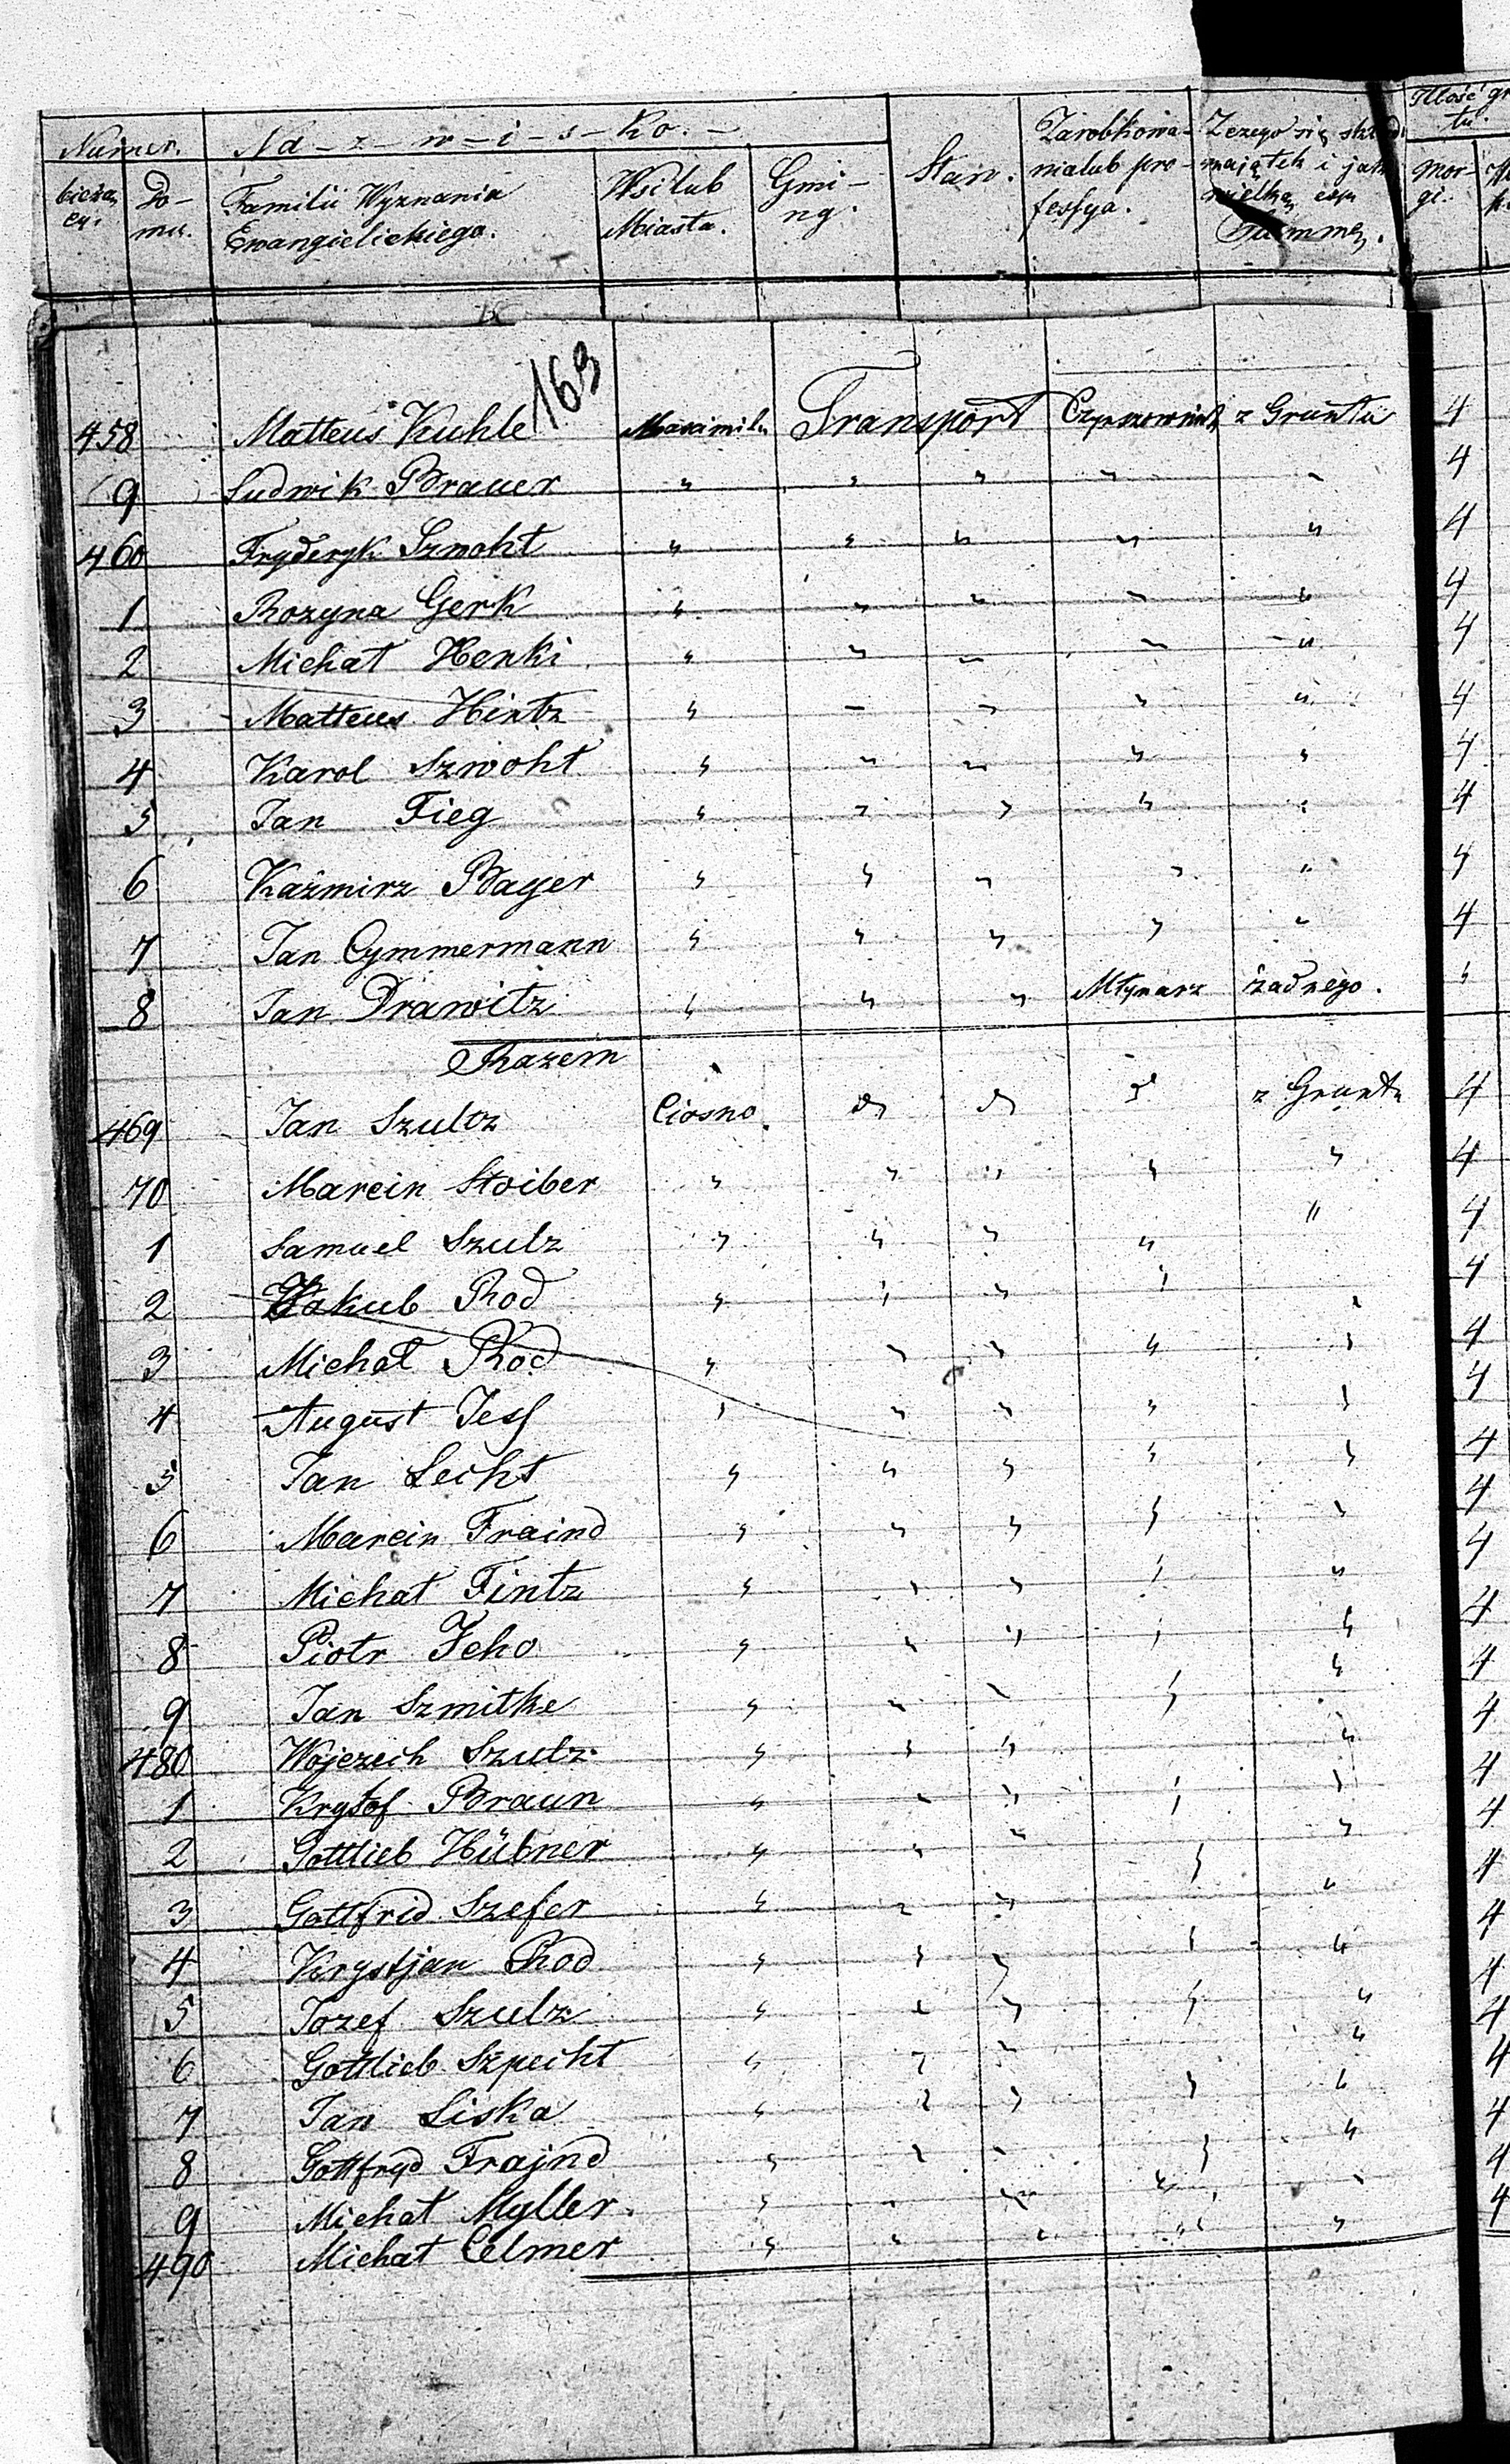 Numer. N-a-z-w-i-s-ko.- Stan. Zarobkowa- Z czego się skład Ilość gr
bieżą- Do- Familii Wyznania Wsi lub Gmi- nia lub pro- majątek i jak tu.
cy. mu. Ewangielickiego. Miasta. ny. fessya. wielką Summę. Mor-
gi.
163
458 Matteus Kuhle Maximil Transport Czynszownik z Gruntu 4
9 Ludwik Brauer " " " " " 4
460 Fryderyk Szwoht " " " " " 4
1 Rozyna Gerk " " " " " 4
2 Michał Henki " " " " " 4
3 Matteus Hintz " " " " " 4
4 Karol Szwoht " " " " " 4
5 Jan Fieg " " " " " 4
6 Kaźmirz Bayer " " " " " 4
7 Jan Cymmermann " " " " " 4
8 Jan Drawitz " " " Młynarz żadnego. "
Razem
469 Jan Szultz Ciosno. d d d z Gruntu 4
70 Marcin Stoiber " " " " " 4
1 Samuel Szulz " " " " " 4
2 Jakub Rod " " " " " 4
3 Michał Rod " " " " " 4
4 August Jess " " " " " 4
5 Jan Lecht " " " " " 4
6 Marcin Fraind " " " " " 4
7 Michał Fintz " " " " " 4
8 Piotr Jeho " " " " " 4
9 Jan Szmitke " " " " " 4
480 Wojciech Szulz " " " " " 4
1 Krystof Braun " " " " " 4
2 Gottlieb Hübner " " " " " 4
3 Gottfrid Szefer " " " " " 4
4 Krystjan Rod " " " " " 4
5 Jozef Szulz " " " " " 4
6 Gottlieb Szpecht " " " " " 4
7 Jan Liska " " " " " 4
8 Gottfryd Frajnd " " " " " 4
9 Michał Myller " " " " " 4
490 Michał Celmer " " " " " 4